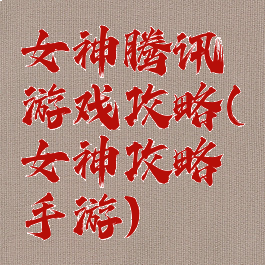 女神腾讯
游戏攻略(
女神攻略
手游)